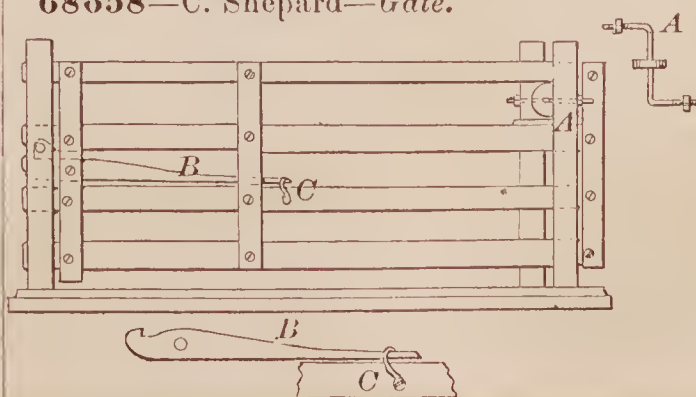 68658—C. Shepard—Gate.
A
A
B
C
B
C